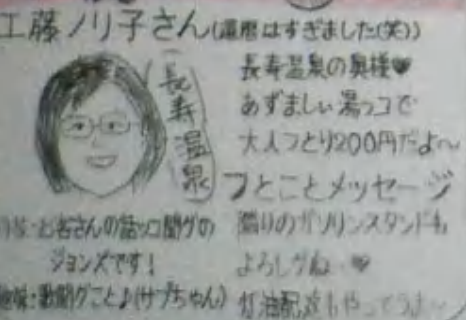 工藤ノリ子さん(還暦はすぎました(笑))
長寿温泉
長寿温泉の奥様♥
あずましい湯っコで
大人フとり200円だよ～
フとことメッセージ
隣りのガソリンスタンドも
よろしグね♥
灯油配達もやってうよ～
お客さんの話ッコ聞グの
ジョンズです!
趣味:歌聞グこと♪(サブちゃん)